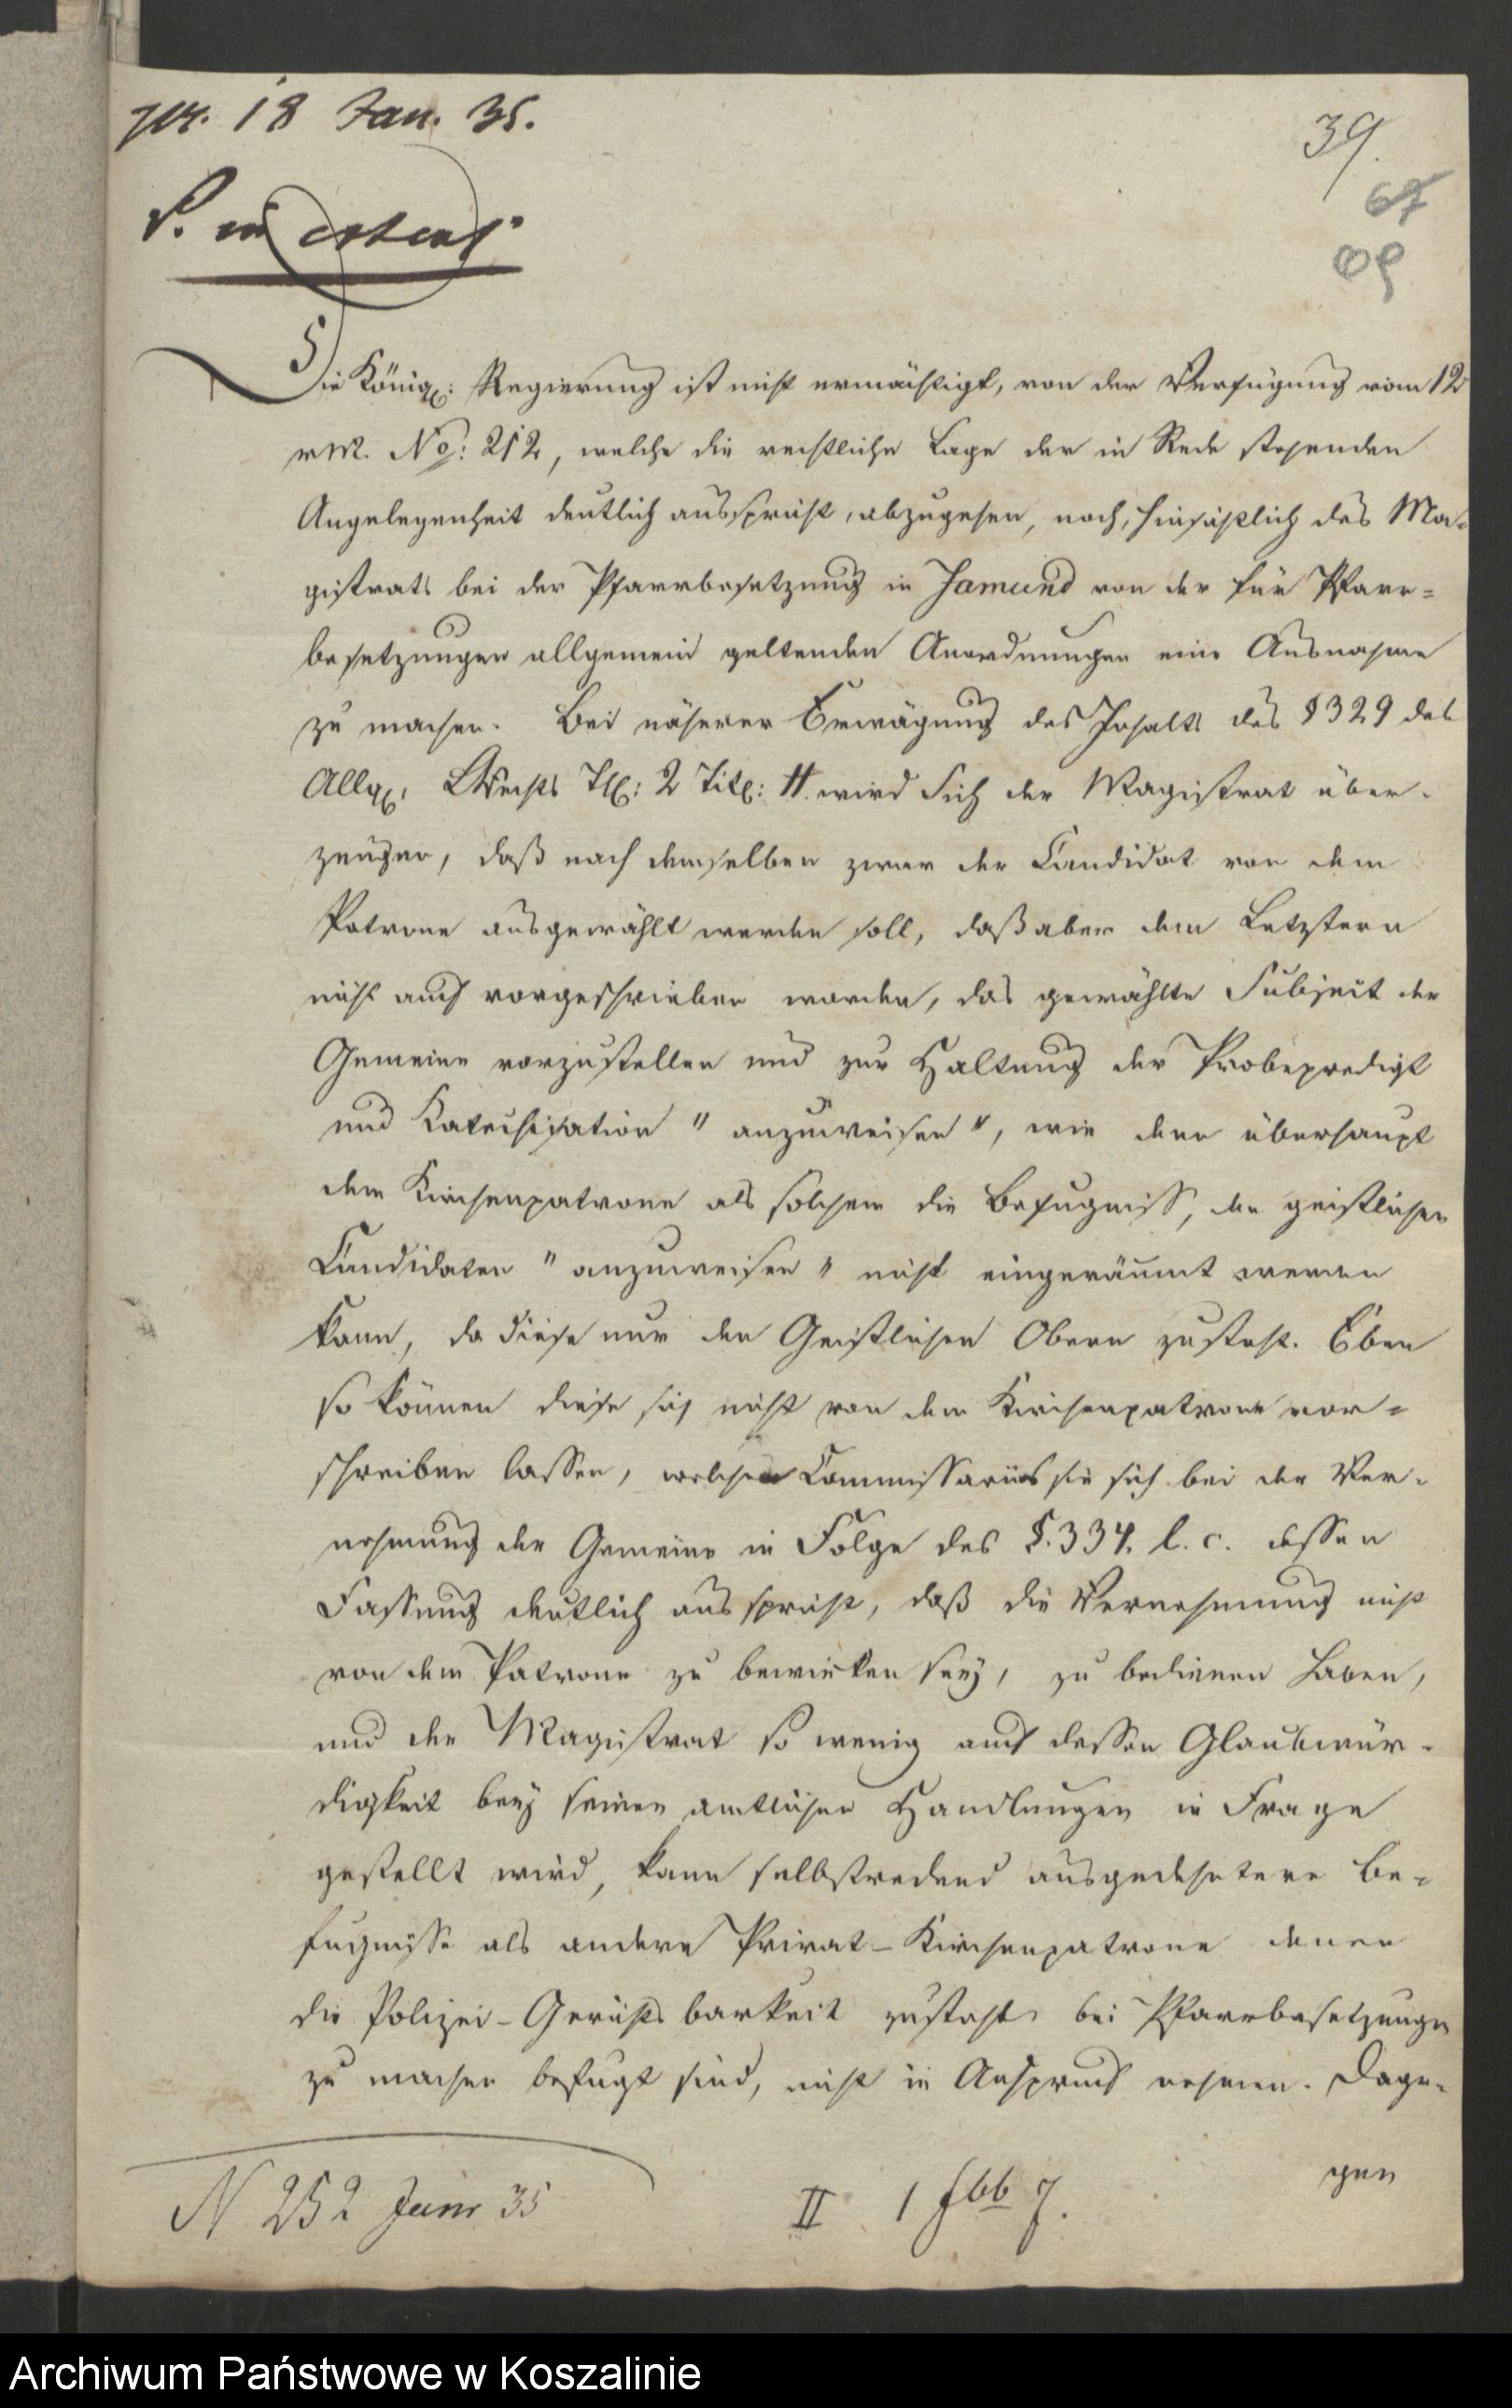 18 Jan. 35.
39.
67
Die Königl: Regierung ist nicht ermächtigt, von der Verfügung vom 12
v M. No: 212, welche die rechtliche Lage der in Rede stehenden
Angelegenheit deutlich ausspricht, abzugehen, noch, hinsichtlich des Ma-
gistrats bei der Pfarrbesetzung in Jamund von der für Pfarr-
besetzungen allgemein geltenden Anordnungen eine Ausnahme
zu machen. Bei näherer Erwägung des Inhalts des § 329 des
Allg. LRechts Th: 2 Tit: 11. wird sich der Magistrat über-
zeugen, daß nach demselben zwar der Candidat von dem
Patrone ausgewählt werden soll, daß aber dem Letztern
nicht auch vorgeschrieben worden, das gewählte Subject der
Gemeine vorzustellen und zur Haltung der Probepredigt
und Katechisation "anzuweisen", wie denn überhaupt
dem Kirchenpatrone als solchem die Befugniß, den geistlichen
Candidaten "anzuweisen" nicht eingeräumt werden
kann, da diese nur den Geistlichen Obern zusteht. Eben
so können diese sich nicht von dem Kirchenpatrone vor-
schreiben lassen, welchen Commissarius sie sich bei der Ver-
nehmung der Gemeine in Folge des §. 334. l. c. dessen
Fassung deutlich ausspricht, daß die Vernehmung nicht
von dem Patrone zu bewirken sey, zu bedienen haben,
und der Magistrat so wenig auch dessen Glaubwür-
digkeit bey seinen amtlichen Handlungen in Frage
gestellt wird, kann selbstredend ausgedehntere Be-
fugnisse als andere Privat-Kirchenpatrone denen
die Polizei-Gerichtsbarkeit zusteht bei Pfarrbesetzungen
zu machen befugt sind, nicht in Anspruch nehmen. Dage-
gen
N 252 Janr 35
II 1
Archiwum Państwowe w Koszalinie